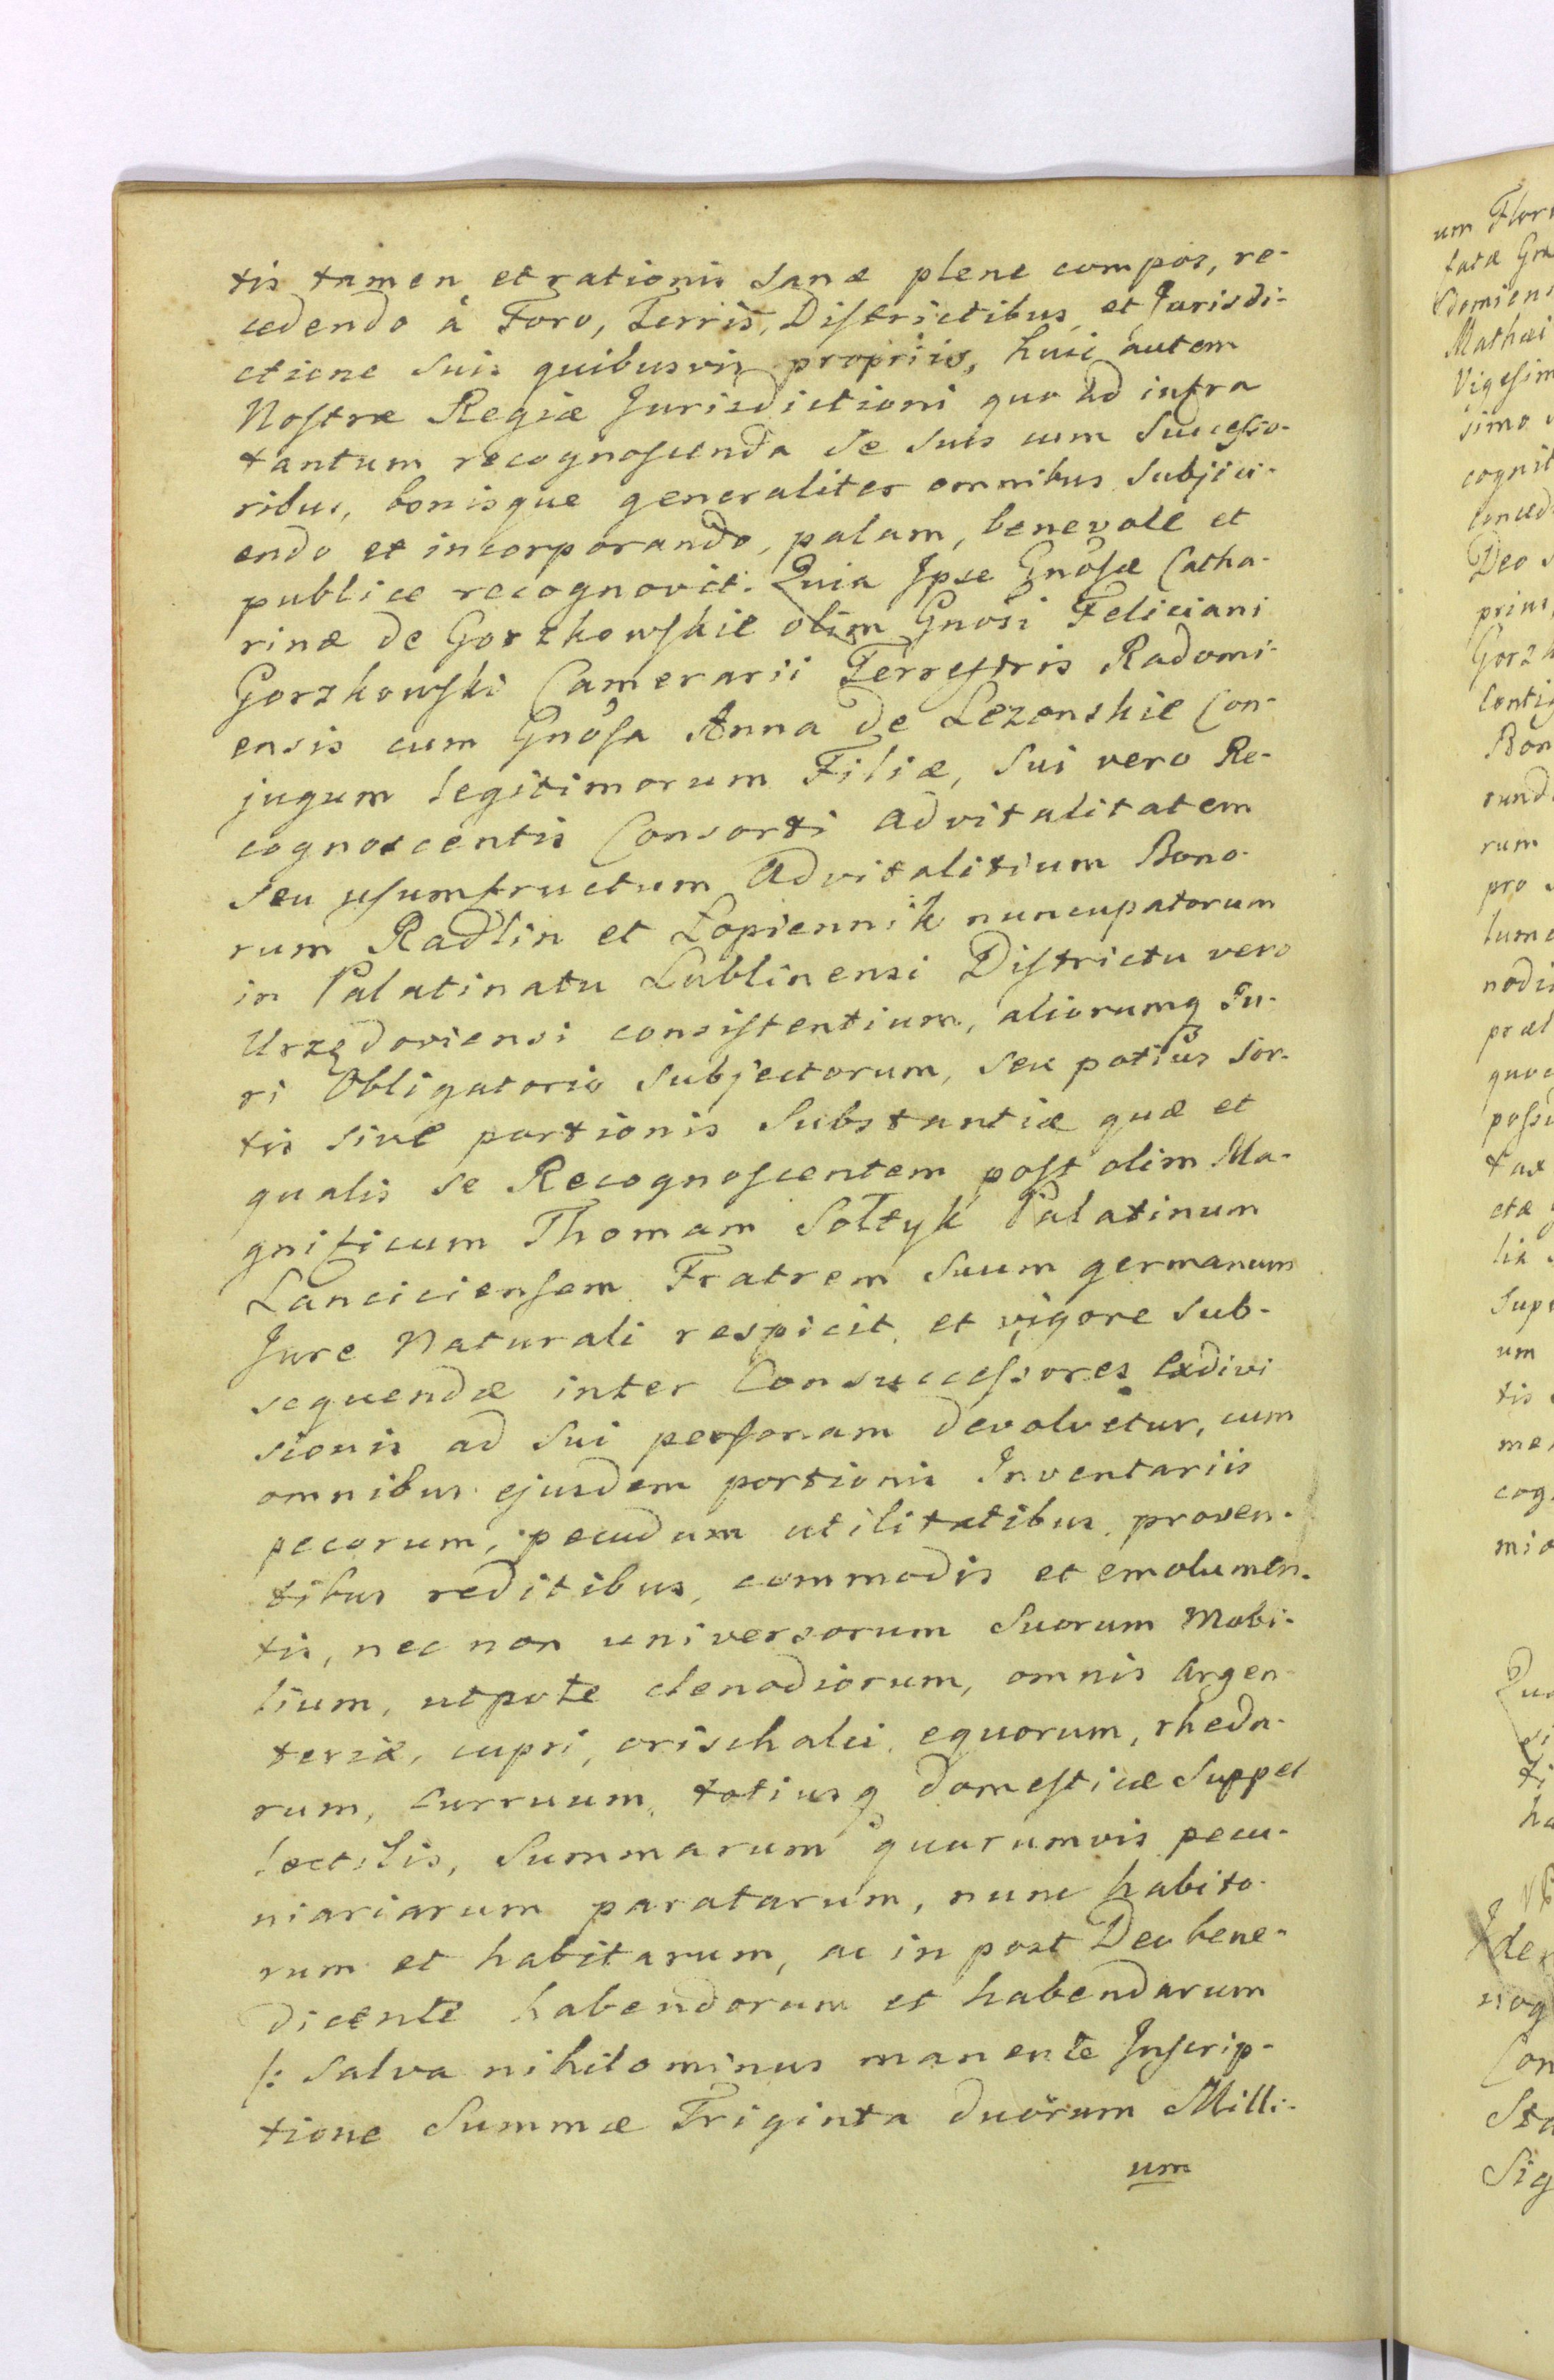 tis tamen et rationis sanæ plene compos, re-
cedendo à Foro, Terris, Districtibus, et Jurisdi-
ctione suis quibusvis propriis, huic autem
Nostræ Regiæ Jurisdictioni quo ad infra
tantum recognoscenda se suis cum Successo-
ribus, bonisque generaliter omnibus subjici-
endo et incorporando, palam, benevole et
publice recognovit. Quia Ipse Gnosæ Catha-
rinæ de Gorzkowskie olim Gnosi Feliciani
Gorzkowski Camerarii Terrestris Radomi-
ensis cum Gnosa Anna de Lezenskie Con-
jugum legitimorum Filiæ, Sui vero Re-
cognoscentis Consorti advitalitatem
seu usumfructum advitalitium Bono-
rum Radlin et Łopiennik nuncupatorum
in Palatinatu Lublinensi Districtu vero
Urzędoviensi consistentium, aliorumq Ju-
ri Obligatorio subjectorum, seu potiùs sor-
tis sive portionis Substantiæ quæ et
qualis se Recognoscentem post olim Ma-
gnificum Thomam Sołtyk Palatinum
Lanciciensem Fratrem suum germanum
Jure Naturali respicit, et vigore sub-
sequendæ inter Consuccessores exdivi
sionis ad sui personam devolvetur, cum
omnibus ejusdem portionis Inventariis
pecorum, pecudum utilitatibus, proven-
tibus reditibus, commodis et emolumen-
tis, nec non universorum suorum Mobi-
lium, utpote clenodiorum, omnis argen-
teriæ, cupri, orischalci, equorum, rheda-
rum, curruum, totiusq domesticæ suppel
lectilis, Summarum quarumvis pecu-
niariarum paratarum, nunc habito-
rum et habitarum, ac in post Deo bene-
dicente habendorum et habendarum
/: salva nihilominus manente Inscrip-
tione Summæ Triginta duorum Milli-
um